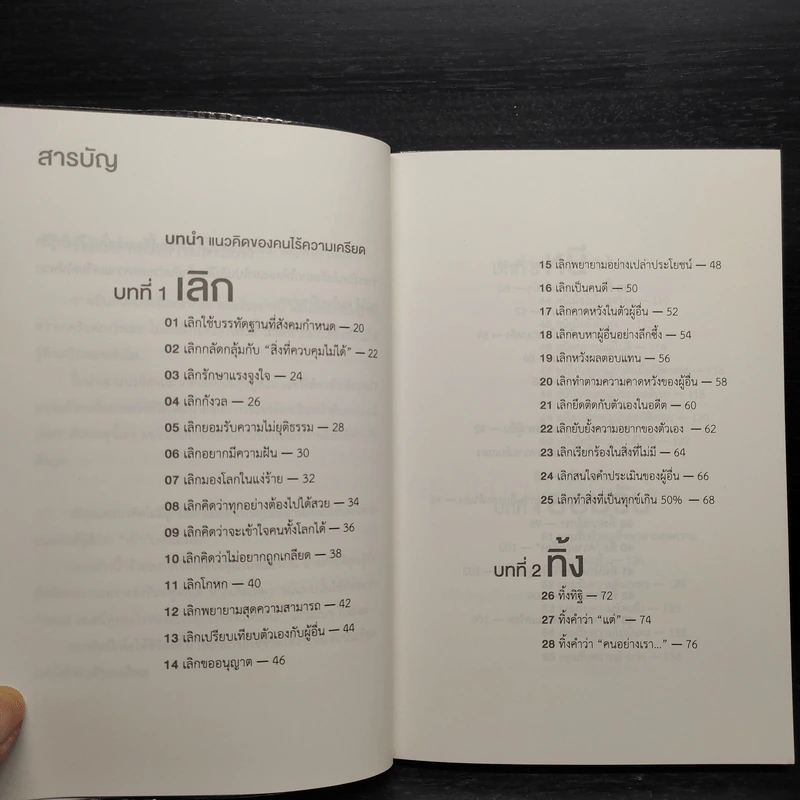 สารบัญ
บทนำ แนวคิดของคนไร้ความเครียด
บทที่ 1 เลิก
01 เลิกใช้บรรทัดฐานที่สังคมกำหนด — 20
02 เลิกกลัดกลุ้มกับ “สิ่งที่ควบคุมไม่ได้” — 22
03 เลิกรักษาแรงจูงใจ — 24
04 เลิกกังวล — 26
05 เลิกยอมรับความไม่ยุติธรรม — 28
06 เลิกอยากมีความฝัน — 30
07 เลิกมองโลกในแง่ร้าย — 32
08 เลิกคิดว่าทุกอย่างต้องไปได้สวย — 34
09 เลิกคิดว่าจะเข้าใจคนทั้งโลกได้ — 36
10 เลิกคิดว่าไม่อยากถูกเกลียด — 38
11 เลิกโกหก — 40
12 เลิกพยายามสุดความสามารถ — 42
13 เลิกเปรียบเทียบตัวเองกับผู้อื่น — 44
14 เลิกขออนุญาต — 46
15 เลิกพยายามอย่างเปล่าประโยชน์ — 48
16 เลิกเป็นคนดี — 50
17 เลิกคาดหวังในตัวผู้อื่น — 52
18 เลิกคบหาผู้อื่นอย่างลึกซึ้ง — 54
19 เลิกหวังผลตอบแทน — 56
20 เลิกทำตามความคาดหวังของผู้อื่น — 58
21 เลิกยึดติดกับตัวเองในอดีต — 60
22 เลิกยับยั้งความอยากของตัวเอง — 62
23 เลิกเรียกร้องในสิ่งที่ไม่มี — 64
24 เลิกสนใจคำประเมินของผู้อื่น — 66
25 เลิกทำสิ่งที่เป็นทุกข์เกิน 50% — 68
บทที่ 2 ทิ้ง
26 ทิ้งทิฐิ — 72
27 ทิ้งคำว่า “แต่” — 74
28 ทิ้งคำว่า “คนอย่างเรา...” — 76